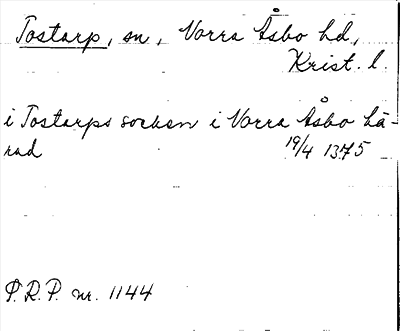 Tostarp, sn, Norra Åsbo hd,
Krist. l.
i Tostarps socken i Norra Åsbo hä-
rad 19/4 1375
P.R.P. nr. 1144